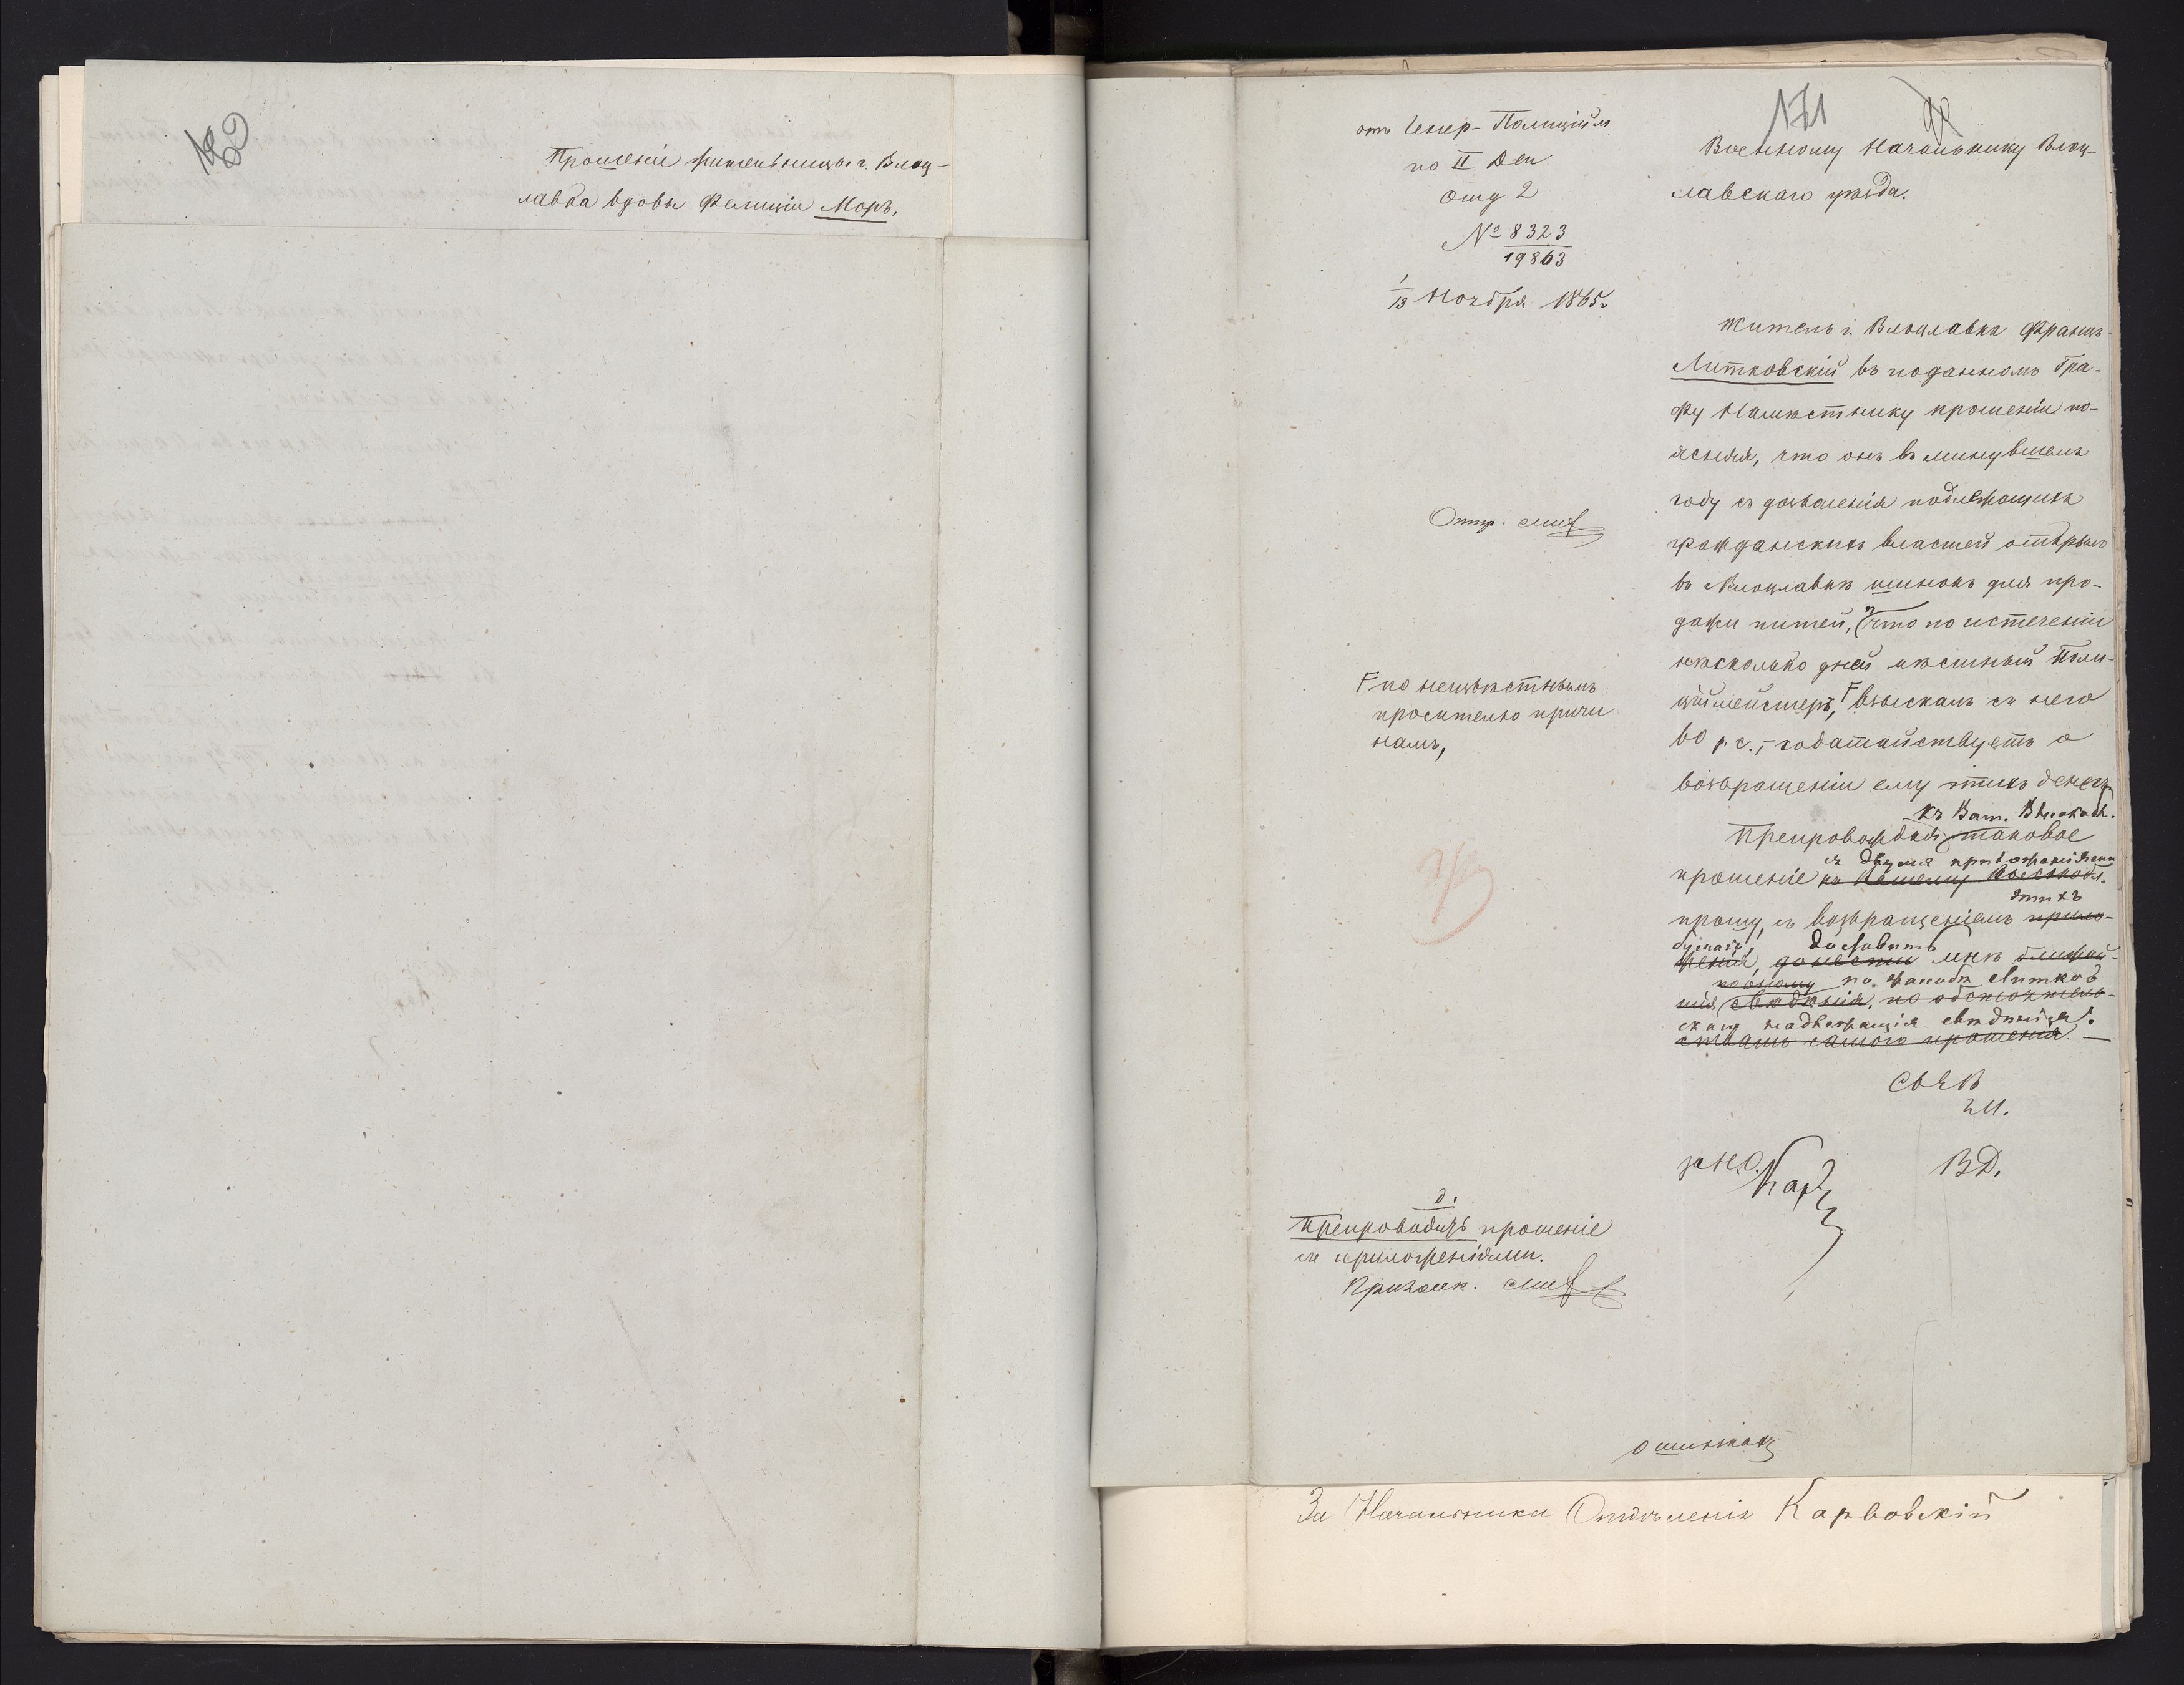 Прошеніе жительницы г. Влоц-
лавка вдовы Фелиціи Моръ.
171
отъ Генер-Полиційм
по II Ден
Отд 2
№ 8323
19863
1/13 Ноября 1865 г
Военному Начальнику Влоц-
лавскаго уѣзда.
Житель г. Влоцлавка Францъ
Литковскій въ поданномъ Гра-
фу Намѣстнику прошеніи по-
ясняя, что онъ въ минувшемъ
году съ дозволенія подлежащихъ
гражданскихъ властей открылъ
въ Влоцлавкѣ шинокъ для про-
дажи питей, что по истеченіи
нѣсколько дней мѣстный Поли-
ціймейстеръ, Г взыскалъ съ него
60 р. с., – ходатайствуетъ о
возвращеніи ему этихъ денегъ
Отпр.
Г по неизвѣстнымъ
просителю причи
намъ,
къ Ваш. Высокобл.
Препровождая таковое
съ двумя приложеніями
прошеніе къ Вашему Высокобл.
этихъ
прошу, съ возвращеніемъ прило-
бумагъ, доставить
женія, донести мнѣ
по оному по жалобѣ Литков
свѣдѣнія, по обстоятель-
скаго надлежащія свѣдѣнія.
ствамъ самого прошенія. —
В Д.
за Н. О. Кар
д.
Препроводить прошеніе
съ приложеніями.
о шинкахъ
За Начальника Отдѣленія Карвовскій